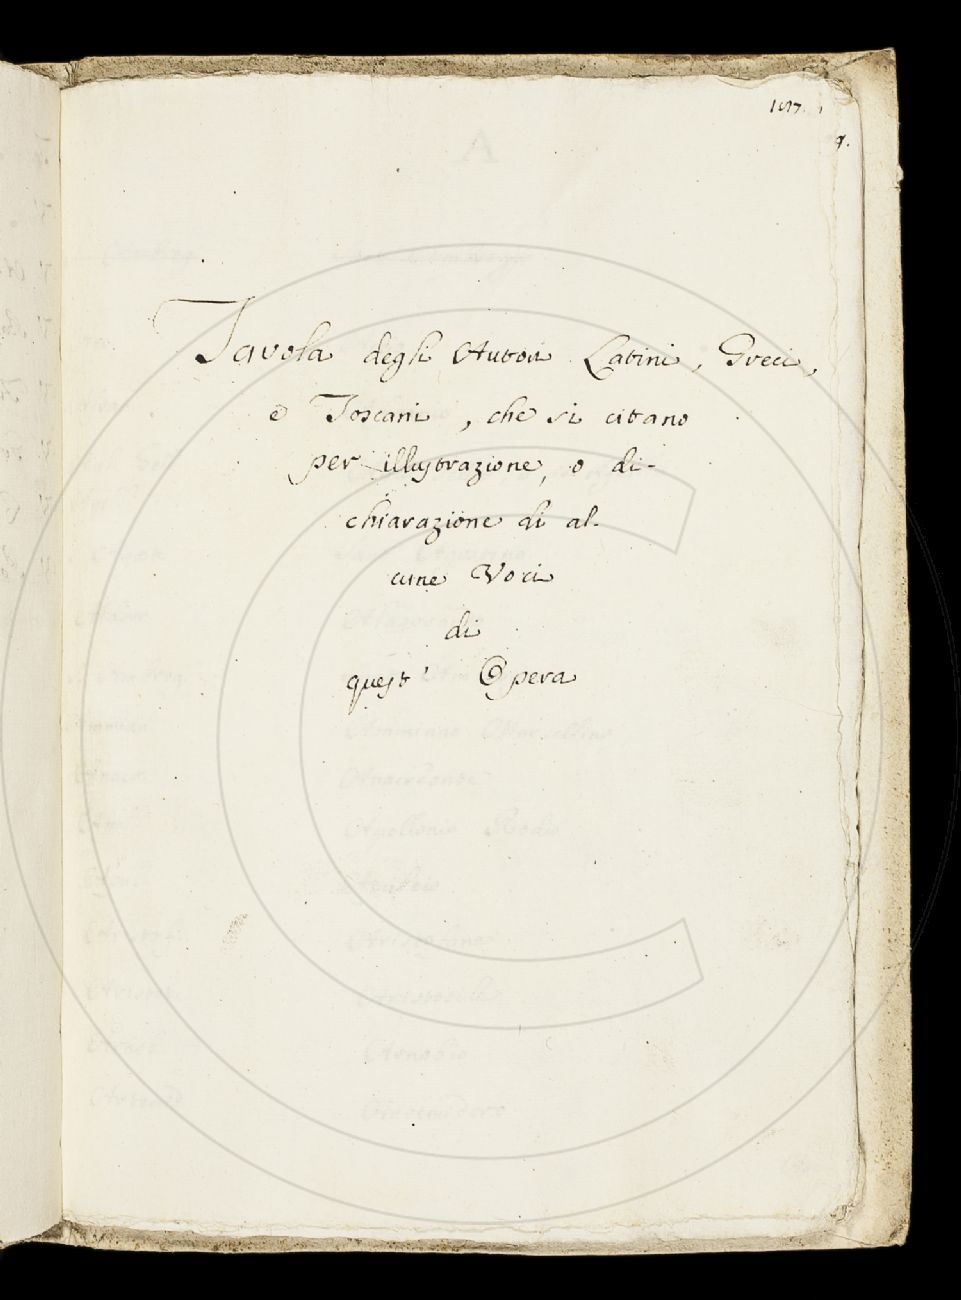 Tavola degli Autori Latini, Greci,
e Toscani, che si citano
per illustrazione, o di-
chiarazione di al-
cune Voci
di
quest' Opera